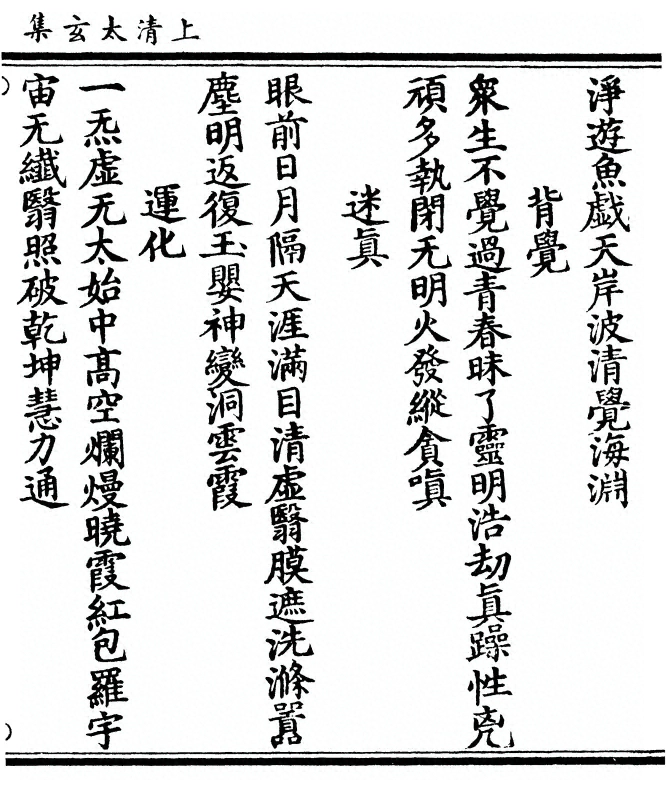 上清太玄集
淨遊魚戯天岸波清覺海淵
背覺
衆生不覺過青春昧了靈明浩刧眞躁性兇
頑多執閉无明火發縱貪嗔
迷眞
眼前日月隔天涯滿目清虛翳膜遮洗滌囂
塵明返復玉嬰神變洞雲霞
運化
一炁虛无太始中髙空爛熳曉霞紅包羅宇
宙无纎翳照破乾坤慧力通